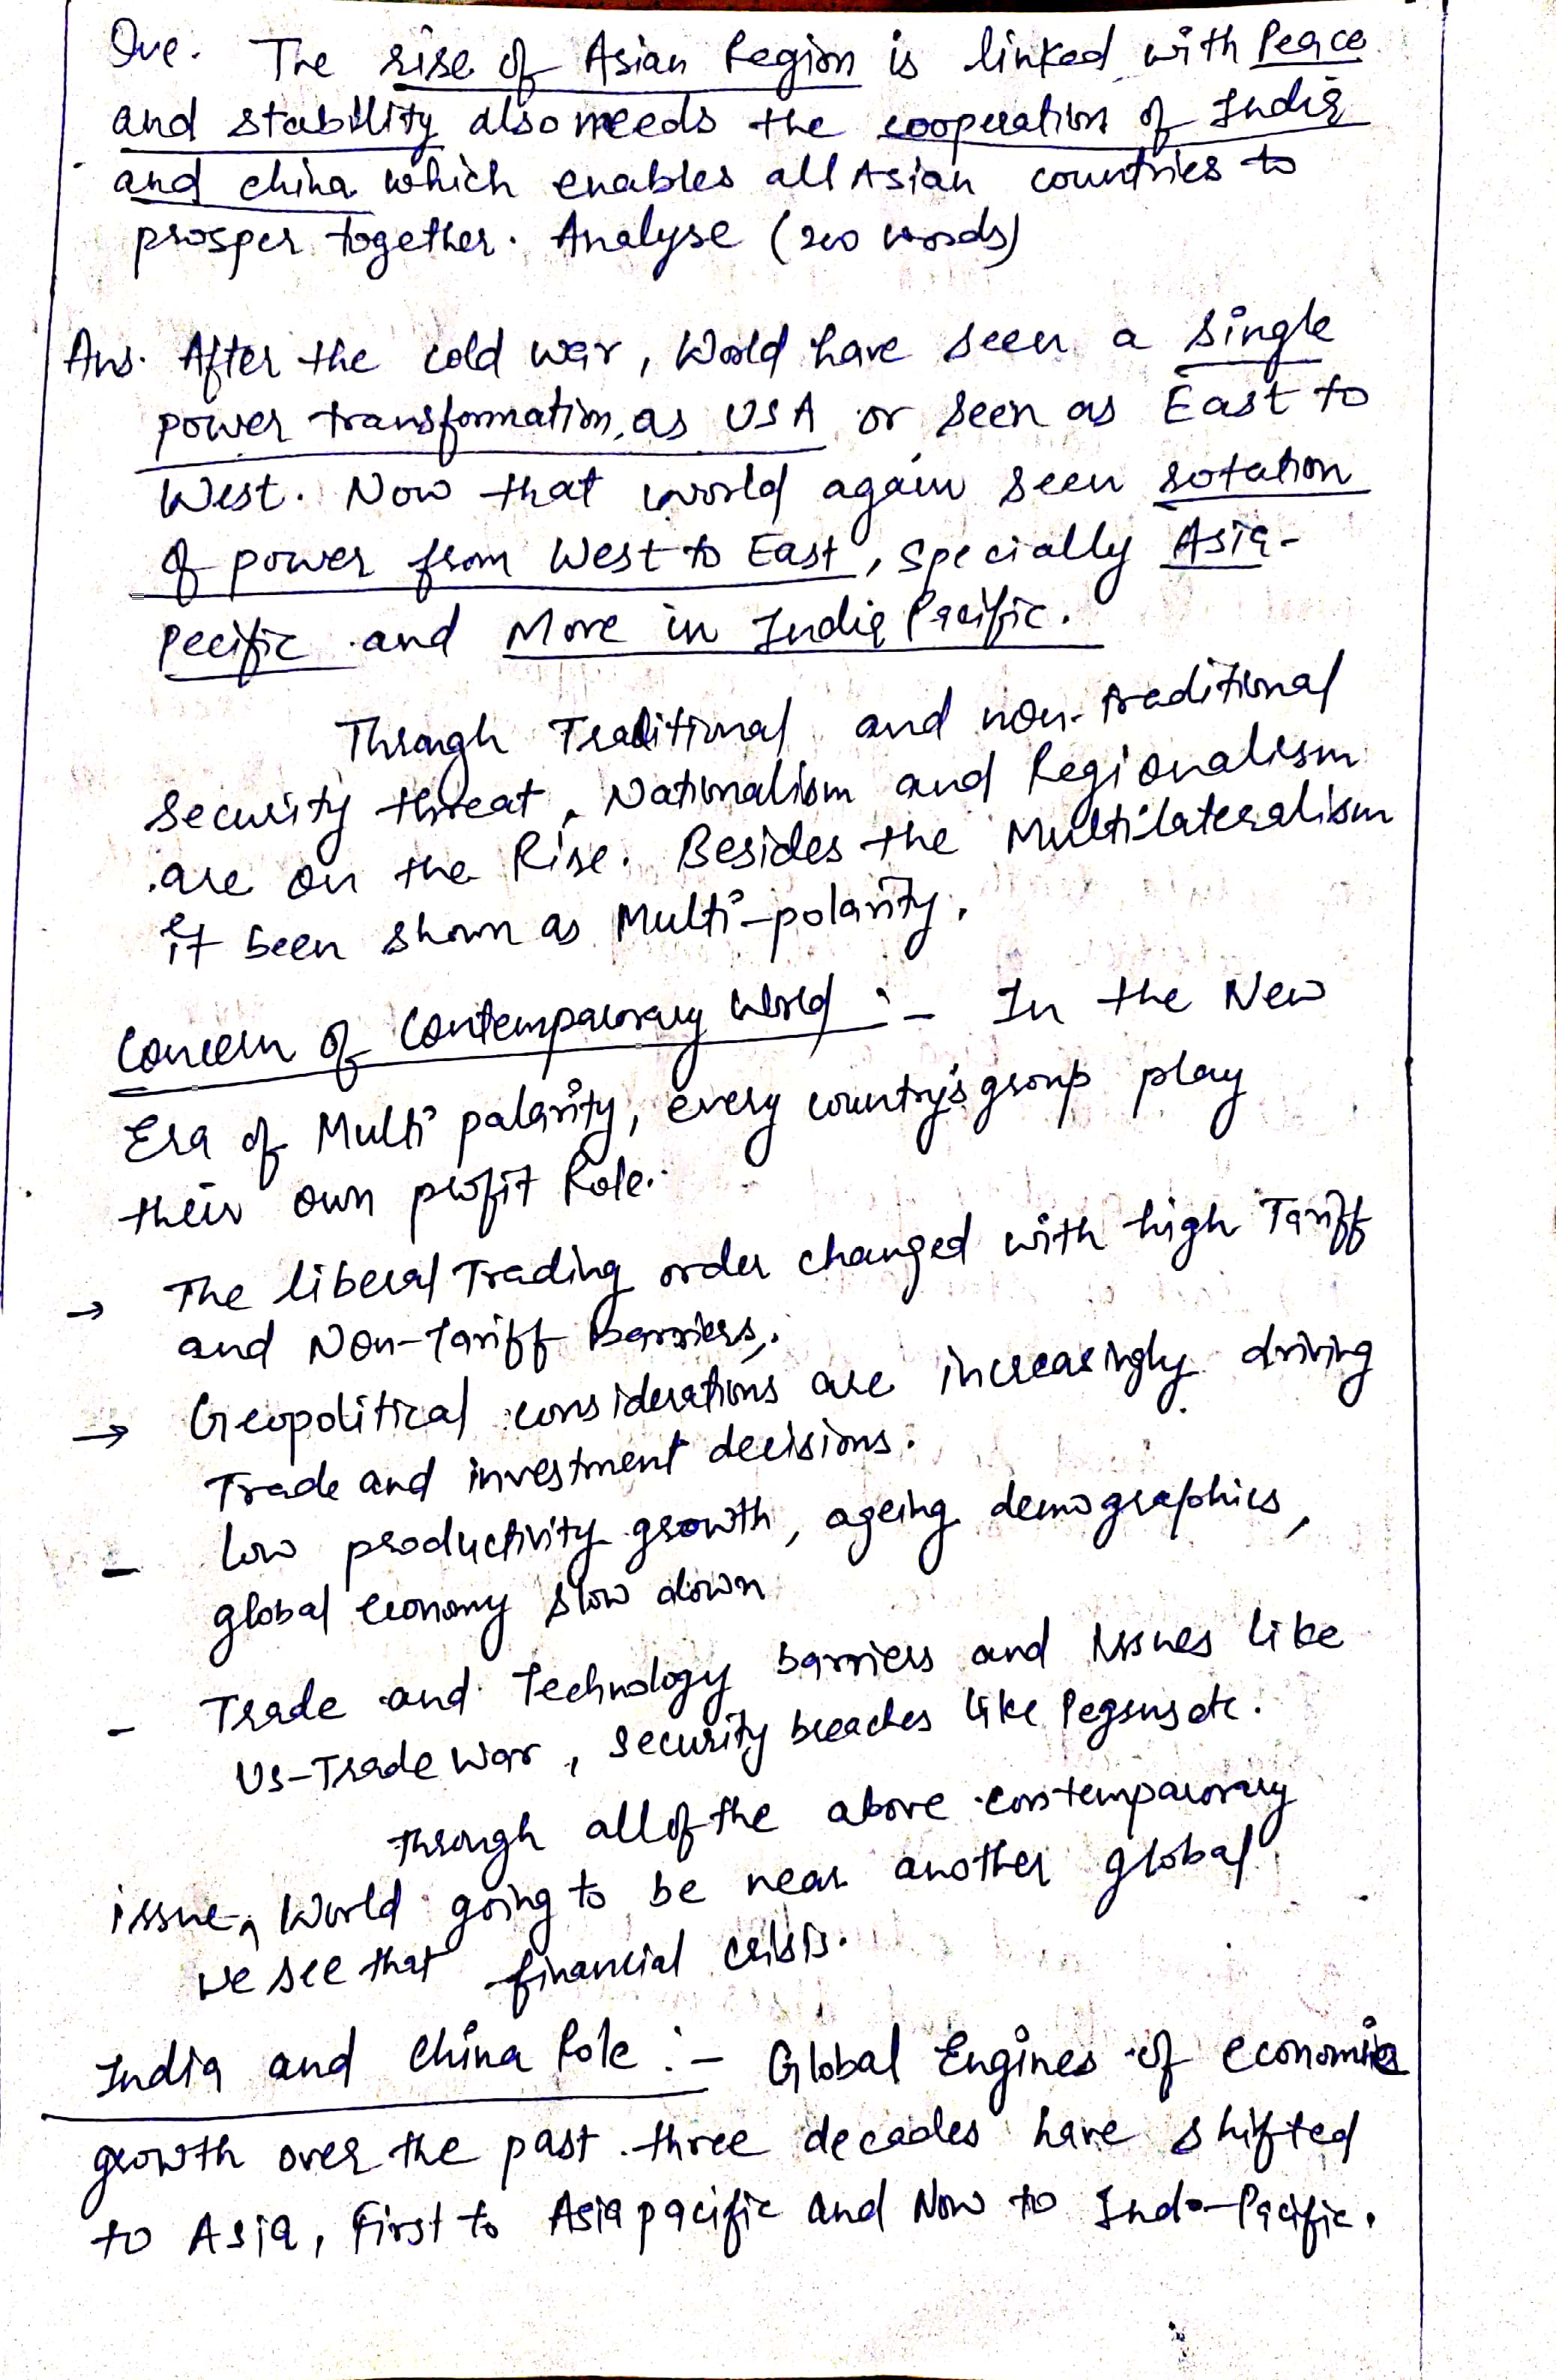 Que. The rise of Asian Region is linked with Peace
and stability also needs the cooperation of India
and china which enables all Asian countries to
prosper together. Analyse (200 words)
Ans. After the cold war, World have seen a single
power transformation, as USA or seen as East to
West. Now that world again seen rotation
of power from West to East, specially Asia-
Pecific and More in India Pacific.
Through Traditional and non-traditional
security threat, Nationalism and Regionalism
are on the Rise. Besides the Multilateralism
it been shown as Multi-polarity.
Concern of Contemparorary World :- In the New
Era of Multi palarity, every country's group play
their own profit Role.
→ The liberal Trading order changed with high Tariff
and Non-Tariff Barriers.
→ Geopolitical considerations are increasingly driving
Trade and investment decisions.
- low productivity growth, ageing demographics,
global economy slow down
- Trade and Technology barriers and Issues like
US-Trade War, security breaches like Pegsus etc.
through all of the above contemparorary
issue, World going to be near another global
we see that financial crisis.
India and China Role :- Global Engines of economies
growth over the past three decades have shifted
to Asia, First to Asia pacific and Now to Indo-Pacific.